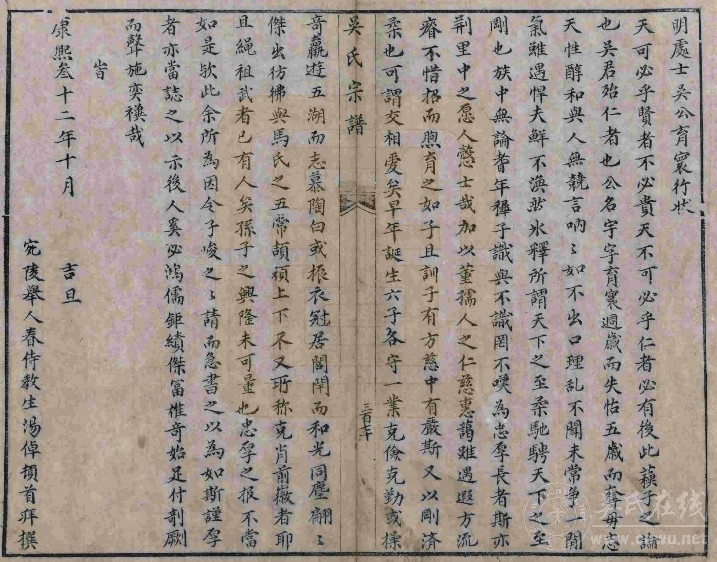 明處士吳公育寰行狀
天可必乎賢者不必貴天不可必乎仁者必有後此蘓子之論
也吳君殆仁者也公名宇字育寰週歲而失怙五歲而
天性醇和與人無競言吶々如不出口理乱不聞未常爭一閒
氣雖遇悍夫鮮不渙然氷釋所謂天下之至柔馳騁天下之至
剛也族中無論耆年穉子識與不識罔不嘆為忠厚長者斯亦
荆里中之愿人愨士哉加以董孺人之仁慈惠藹雖遇遐方流
瘠不惜招而煦育之如子且訓子有方慈中有嚴斯又以剛濟
柔也可謂交相愛矣早年誕生六子各守一業克儉克勤或操
吳氏宗譜
奇贏遊五湖而志慕陶白或振衣冠居閭閈而和光同塵翩々
傑出彷彿與馬氏之五常頡頏上下不又所称克肖前徽者耶
且繩祖武者已有人矣孫子之興隆未可量也忠厚之报不當
如是欤此余所為因令子峻之々請而急書之以為如斯謹厚
者亦當誌之以示後人奚必鴻儒鉅績傑冨権奇始足付剞劂
而聲施奕禩哉
旹
康熙叁十二年十月 吉旦
宛陵舉人春侍教生湯倬頓首拜撰
吳氏在线